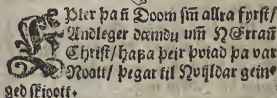 Epter þañ Doom sm̃ allra fyrst/
Andleger dæmdu um Ñ Errañ
Christ/ hafa þeir þotad þa var
Noott/ þegar til Noyldar geing
ged skjoott.